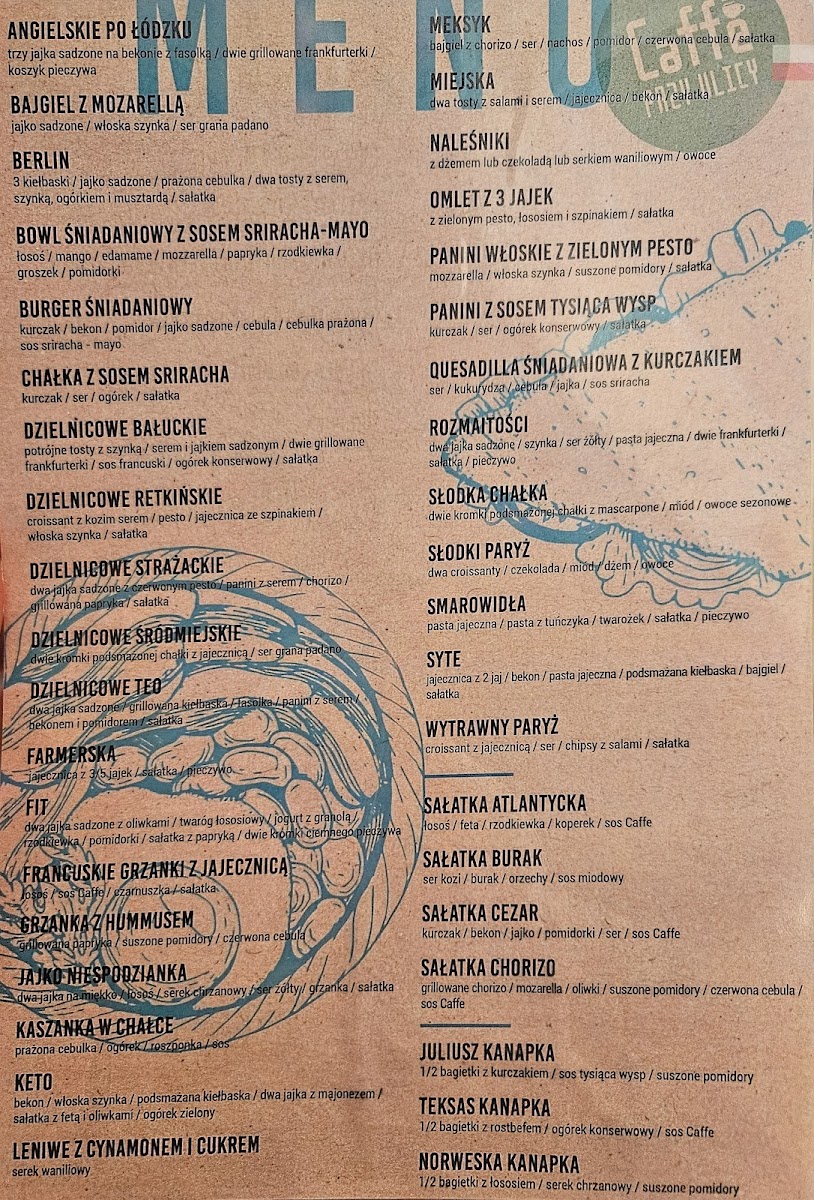 MENU
Caffe
PRZY ULICY
ANGIELSKIE PO ŁÓDZKU
trzy jajka sadzone na bekonie z fasolką / dwie grillowane frankfurterki /
koszyk pieczywa
BAJGIEL Z MOZARELLĄ
jajko sadzone / włoska szynka / ser grana padano
BERLIN
3 kiełbaski / jajko sadzone / prażona cebulka / dwa tosty z serem,
szynką, ogórkiem i musztardą / sałatka
BOWL ŚNIADANIOWY Z SOSEM SRIRACHA-MAYO
łosoś / mango / edamame / mozzarella / papryka / rzodkiewka /
groszek / pomidorki
BURGER ŚNIADANIOWY
kurczak / bekon / pomidor / jajko sadzone / cebula / cebulka prażona /
sos sriracha - mayo
CHAŁKA Z SOSEM SRIRACHA
kurczak / ser / ogórek / sałatka
DZIELNICOWE BAŁUCKIE
potrójne tosty z szynką / serem i jajkiem sadzonym / dwie grillowane
frankfurterki / sos francuski / ogórek konserwowy / sałatka
DZIELNICOWE RETKIŃSKIE
croissant z kozim serem / pesto / jajecznica ze szpinakiem /
włoska szynka / sałatka
DZIELNICOWE STRAŻACKIE
dwa jajka sadzone z czerwonym pesto / panini z serem / chorizo /
grillowana papryka / sałatka
DZIELNICOWE ŚRÓDMIEJSKIE
dwie kromki podsmażonej chałki z jajecznicą / ser grana padano
DZIELNICOWE TEO
dwa jajka sadzone / grillowana kiełbaska / fasolka / panini z serem /
bekonem i pomidorem / sałatka
FARMERSKA
jajecznica z 3/5 jajek / sałatka / pieczywo
FIT
dwa jajka sadzone z oliwkami / twaróg łososiowy / jogurt z granolą /
rzodkiewka / pomidorki / sałatka z papryką / dwie kromki ciemnego pieczywa
FRANCUSKIE GRZANKI Z JAJECZNICĄ
łosoś / sos Caffe / czarnuszka / sałatka
GRZANKA Z HUMMUSEM
grillowana papryka / suszone pomidory / czerwona cebula
JAJKO NIESPODZIANKA
dwa jajka na miękko / łosoś / serek chrzanowy / ser żółty / grzanka / sałatka
KASZANKA W CHAŁCE
prażona cebulka / ogórek / roszponka / sos
KETO
bekon / włoska szynka / podsmażana kiełbaska / dwa jajka z majonezem /
sałatka z fetą i oliwkami / ogórek zielony
LENIWE Z CYNAMONEM I CUKREM
serek waniliowy
MEKSYK
bajgiel z chorizo / ser / nachos / pomidor / czerwona cebula / sałatka
MIEJSKA
dwa tosty z salami i serem / jajecznica / bekon / sałatka
NALEŚNIKI
z dżemem lub czekoladą lub serkiem waniliowym / owoce
OMLET Z 3 JAJEK
z zielonym pesto, łososiem i szpinakiem / sałatka
PANINI WŁOSKIE Z ZIELONYM PESTO
mozzarella / włoska szynka / suszone pomidory / sałatka
PANINI Z SOSEM TYSIĄCA WYSP
kurczak / ser / ogórek konserwowy / sałatka
QUESADILLA ŚNIADANIOWA Z KURCZAKIEM
ser / kukurydza / cebula / jajka / sos sriracha
ROZMAITOŚCI
dwa jajka sadzone / szynka / ser żółty / pasta jajeczna / dwie frankfurterki /
sałatka / pieczywo
SŁODKA CHAŁKA
dwie kromki podsmażonej chałki z mascarpone / miód / owoce sezonowe
SŁODKI PARYŻ
dwa croissanty / czekolada / miód / dżem / owoce
SMAROWIDŁA
pasta jajeczna / pasta z tuńczyka / twarożek / sałatka / pieczywo
SYTE
jajecznica z 2 jaj / bekon / pasta jajeczna / podsmażana kiełbaska / bajgiel /
sałatka
WYTRAWNY PARYŻ
croissant z jajecznicą / ser / chipsy z salami / sałatka
SAŁATKA ATLANTYCKA
łosoś / feta / rzodkiewka / koperek / sos Caffe
SAŁATKA BURAK
ser kozi / burak / orzechy / sos miodowy
SAŁATKA CEZAR
kurczak / bekon / jajko / pomidorki / ser / sos Caffe
SAŁATKA CHORIZO
grillowane chorizo / mozarella / oliwki / suszone pomidory / czerwona cebula /
sos Caffe
JULIUSZ KANAPKA
1/2 bagietki z kurczakiem / sos tysiąca wysp / suszone pomidory
TEKSAS KANAPKA
1/2 bagietki z rostbefem / ogórek konserwowy / sos Caffe
NORWESKA KANAPKA
1/2 bagietki z łososiem / serek chrzanowy / suszone pomidory